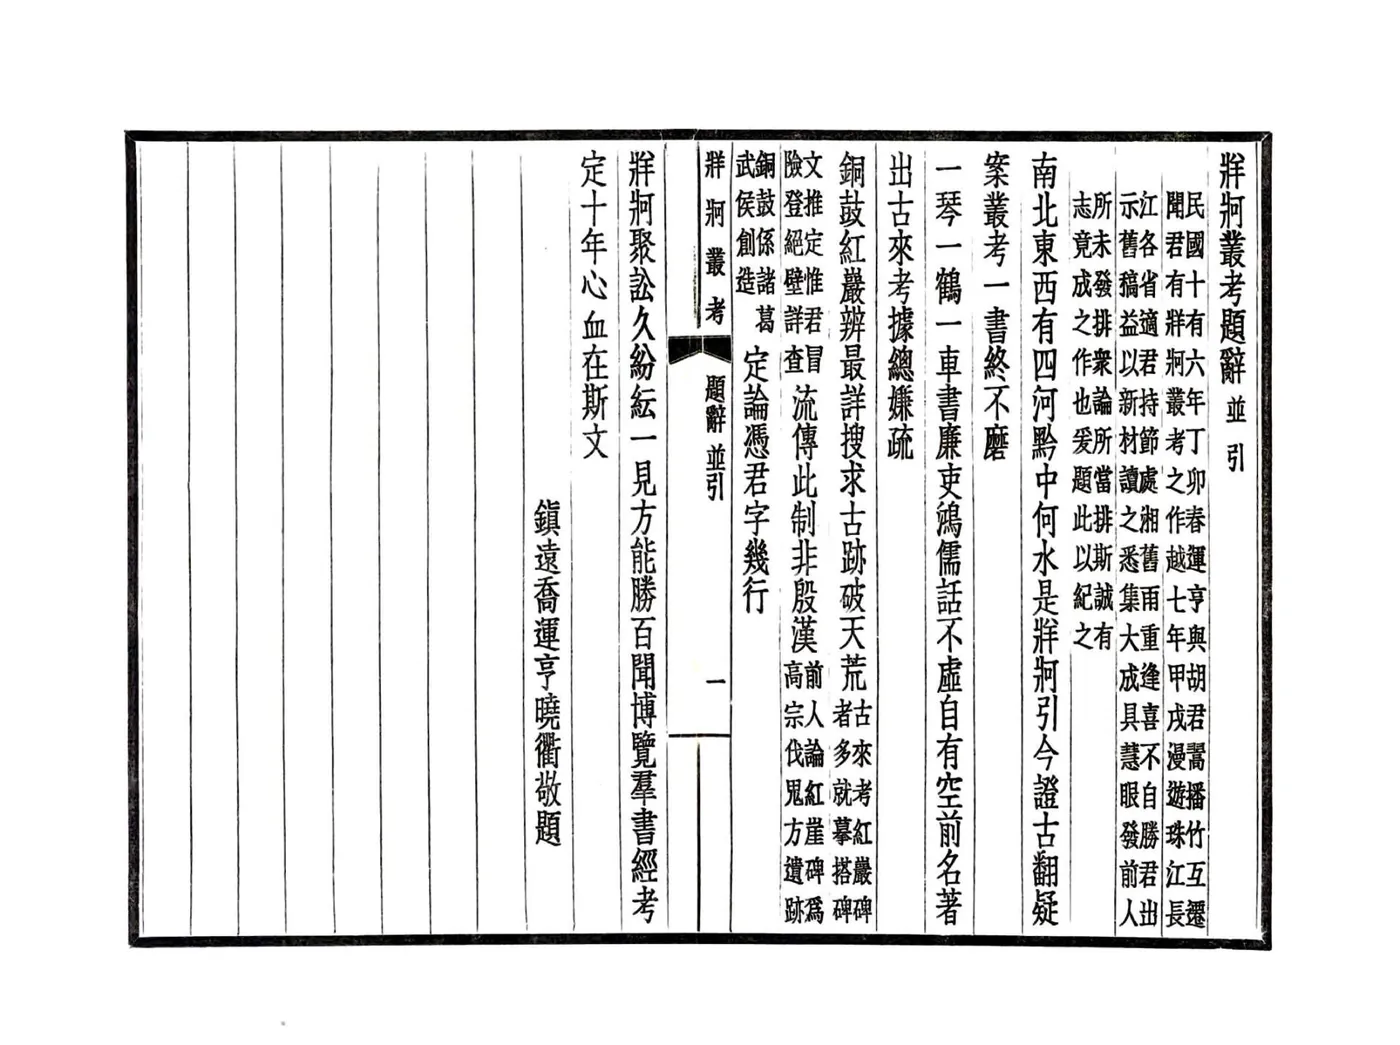 牂牁叢考題辭並引
民國十有六年丁卯春運亨與胡君翯播竹互遷
聞君有牂牁叢考之作越七年甲戌漫遊珠江長
江各省適君持節處湘舊雨重逢喜不自勝君出
示舊稿益以新材讀之悉集大成具慧眼發前人
所未發排衆論所當排斯誠有
志竟成之作也爰題此以紀之
南北東西有四河黔中何水是牂牁引今證古翻疑
案叢考一書終不磨
一琴一鶴一車書廉吏鴻儒話不虛自有空前名著
出古來考據總嫌疏
銅鼓紅巖辨最詳搜求古跡破天荒古來考紅巖碑
者多就摹搭碑
文推定惟君冒
險登絕壁詳查流傳此制非殷漢前人論紅崖碑爲
高宗伐鬼方遺跡
銅鼓係諸葛
武侯創造定論憑君字幾行
牂牁叢考
題辭並引
一
牂牁聚訟久紛紜一見方能勝百聞博覽羣書經考
定十年心血在斯文
鎮遠喬運亨曉衢敬題